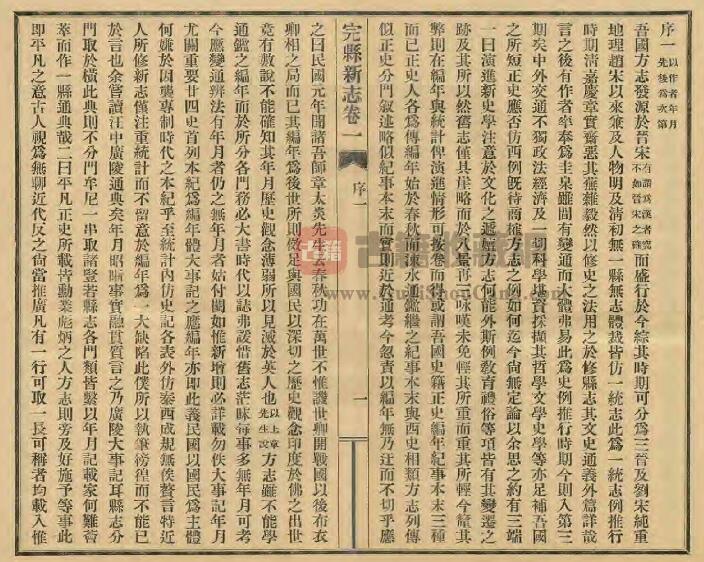 序一 以作者年月先後為次第
吾國方志發源於晉宋有謂為漢者究不如晉宋之確而盛行於今綜其時期可分為三晉及劉宋純重
地理趙宋以來兼及人物明及清初無一縣無志體裁皆仿一統志此為一統志例推行
時期清嘉慶章實齋惡其蕪雜毅然以修史之法用之於修縣志其文史通義外篇詳哉
言之後有作者率奉為圭臬雖間有變通而大體弗易此為史例推行時期今則入第三
期矣中外交通不獨政法經濟及一切科學堪資採擷其哲學文學史學等亦足補吾國
之所短正史應否仿西例既待商榷方志之例如何迄今尚無定論以余思之約有三端
一曰演進新史學注意於文化之遞嬗方志何能外斯例教育禮俗等項皆有其變遷之
跡及其所以然舊志僅具崖略而於八景再三咏嘆未免輕其所重而重其所輕今釐其
弊則在編年與統計俾演進情形可按卷而得或謂吾國史籍正史編年紀事本末三種
而已正史人各為傳編年始於春秋而涑水通鑑繼之紀事本末與西史相類方志列傳
似正史分門叙述略似紀事本末而實則近於通考今忽責以編年無乃迂而不切乎應
完縣新志卷一
序一
一
之曰民國元年聞諸吾師章太炎先生云春秋功在萬世不惟譏世卿開戰國以後布衣
卿相之局而已其編年為後世所則傚足與國民以深切之歷史觀念印度於佛之出世
竟有數說不能確知其年月歷史觀念薄弱所以見滅於英人也以上章先生說方志雖不能學
通鑑之編年而於所分各門務必大書時代以誌弗諼惜舊志茫昧每事多無年月可考
今應變通辦法有年月者仍之無年月者始付闕如惟新增則必詳載勿佚大事記年月
尤關重要廿四史首列本紀為編年體大事記之應編年亦即此義民國以國民為主體
何嫌於因襲專制時代之本紀乎至統計內仿史記各表外仿泰西成規無俟贅言特近
人所修新志僅注重統計而不留意於編年為一大缺陷此僕所以執筆徬徨而不能已
於言也余嘗讀汪中廣陵通典矣年月昭晰事實融貫質言之乃廣陵大事記耳縣志分
門取於橫此典則不分門牟尼一串取諸豎若縣志各門類皆繫以年月記載家何難薈
萃而作一縣通典哉二曰平凡正史所載皆勳業彪炳之人方志則旁及好施予等事此
即平凡之意古人視為無聊近代反之尚當推廣凡有一行可取一長可稱者均載入惟
古籍
www.GujiShuCang.com